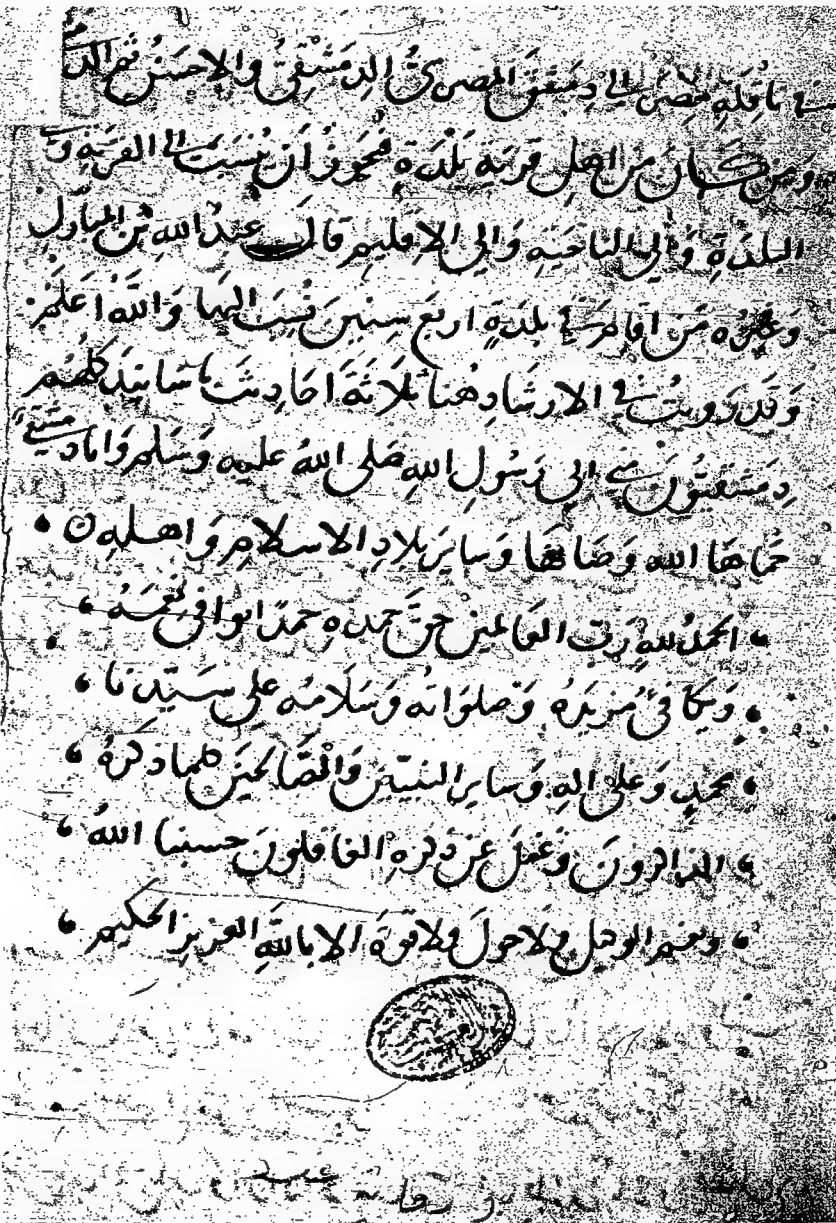 في ناقلة مصر الى دمشق المصري الدمشقي والاحسن ثم الد
ومن كان من اهل قرية بلدة فيجوز ان ينسب الى القرية و
البلدة والى الناحية والى الاقليم قال عبد الله بن المبارك
وغيره من اقام في بلدة اربع سنين نسب اليها والله اعلم
وقد رويت في الارشاد هنا ثلاثة احاديث باسانيد كلهم
دمشقيون مني الى رسول الله صلى الله عليه وسلم وانا دمشقي
حماها الله وصانها وساير بلاد الاسلام واهله ن
الحمد لله رب العالمين حق حمده حمدا يوافي نعمه
ويكافئ مزيده وصلواته وسلامه على سيدنا
محمد وعلى اله وساير النبيين والصالحين كلما ذكره
الذاكرون وغفل عن ذكره الغافلون حسبنا الله
ونعم الوكيل ولا حول ولا قوة الا بالله العزيز الحكيم